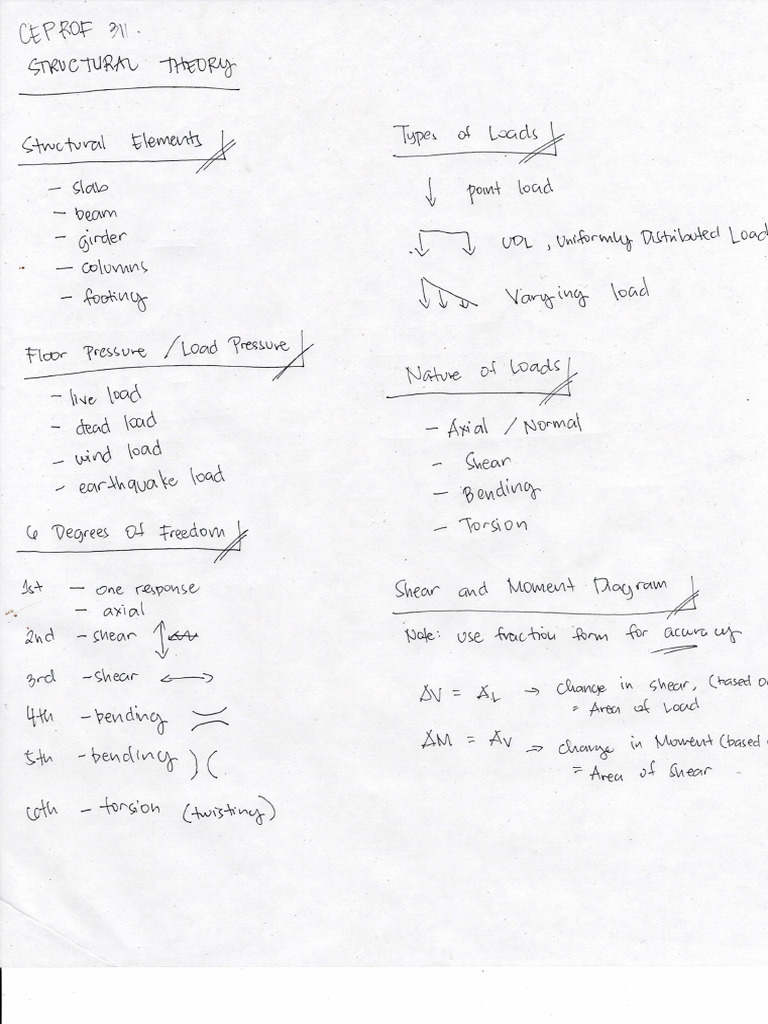 CEPROF 311.
STRUCTURAL THEORY
Structural Elements
- slab
- beam
- girder
- columns
- footing
Floor Pressure / Load Pressure
- live load
- dead load
- wind load
- earthquake load
6 Degrees Of Freedom
1st - one response
- axial
2nd - shear
3rd - shear
4th - bending
5th - bending
6th - torsion (twisting)
Types of Loads
point load
UDL, Uniformly Distributed Load
Varying load
Nature of Loads
- Axial / Normal
- Shear
- Bending
- Torsion
Shear and Moment Diagram
Note: use fraction form for accuracy
ΔV = A_L → Change in shear, (based o
= Area of Load
ΔM = A_V → change in Moment (based
= Area of shear